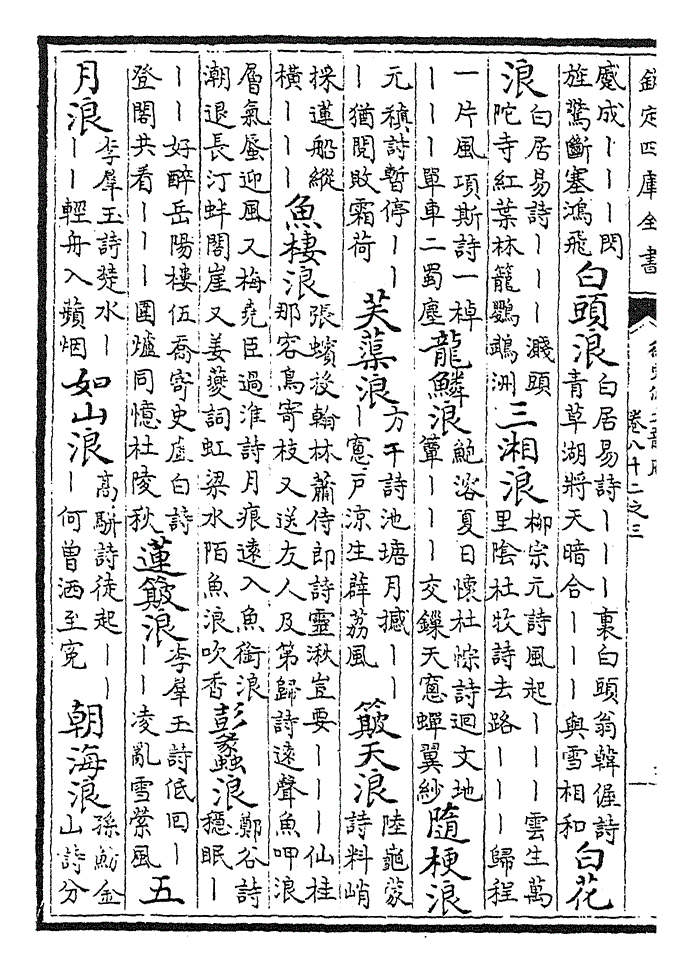 欽定四庫全書
卷八十二之三
蹙成丨丨丨閃旌驚斷塞鴻飛 白頭浪 白居易詩丨丨丨裏白頭翁韓偓詩青草湖將天暗合丨丨丨與雪相和 白花
浪 白居易詩丨丨丨濺頭陀寺紅葉林籠鸚鵡洲 三湘浪 柳宗元詩風起丨丨丨雲生萬里陰杜牧詩去路丨丨丨歸程
一片風項斯詩一棹丨丨丨單車二蜀塵 龍鱗浪 鮑溶夏日懷杜悰詩迴文地簟丨丨丨交鏁天窻蟬翼紗 隨梗浪
元稹詩暫停丨丨丨猶閱敗霜荷 芙蕖浪 方干詩池塘月撼丨丨丨窻戸涼生薜荔風 簸天浪 陸龜蒙詩料峭
採蓮船縱橫丨丨丨 魚棲浪 張蠙投翰林蕭侍郎詩靈湫豈要丨丨丨仙桂那容鳥寄枝又送友人及第歸詩遠聲魚呷浪
層氣蜃迎風又梅堯臣過淮詩月痕遠入魚銜浪潮退長汀蚌閣崖又姜夔詞虹梁水陌魚浪吹香 彭蠡浪 鄭谷詩穩眠丨
丨丨好醉岳陽樓伍喬寄史虛白詩登閣共看丨丨丨圍爐同憶杜陵秋 蓮簸浪 李羣玉詩低回丨丨丨凌亂雪縈風 五
月浪 李羣玉詩楚水丨丨丨輕舟入蘋烟 如山浪 高駢詩徒起丨丨丨何曾洒至寃 朝海浪 孫魴金山詩分